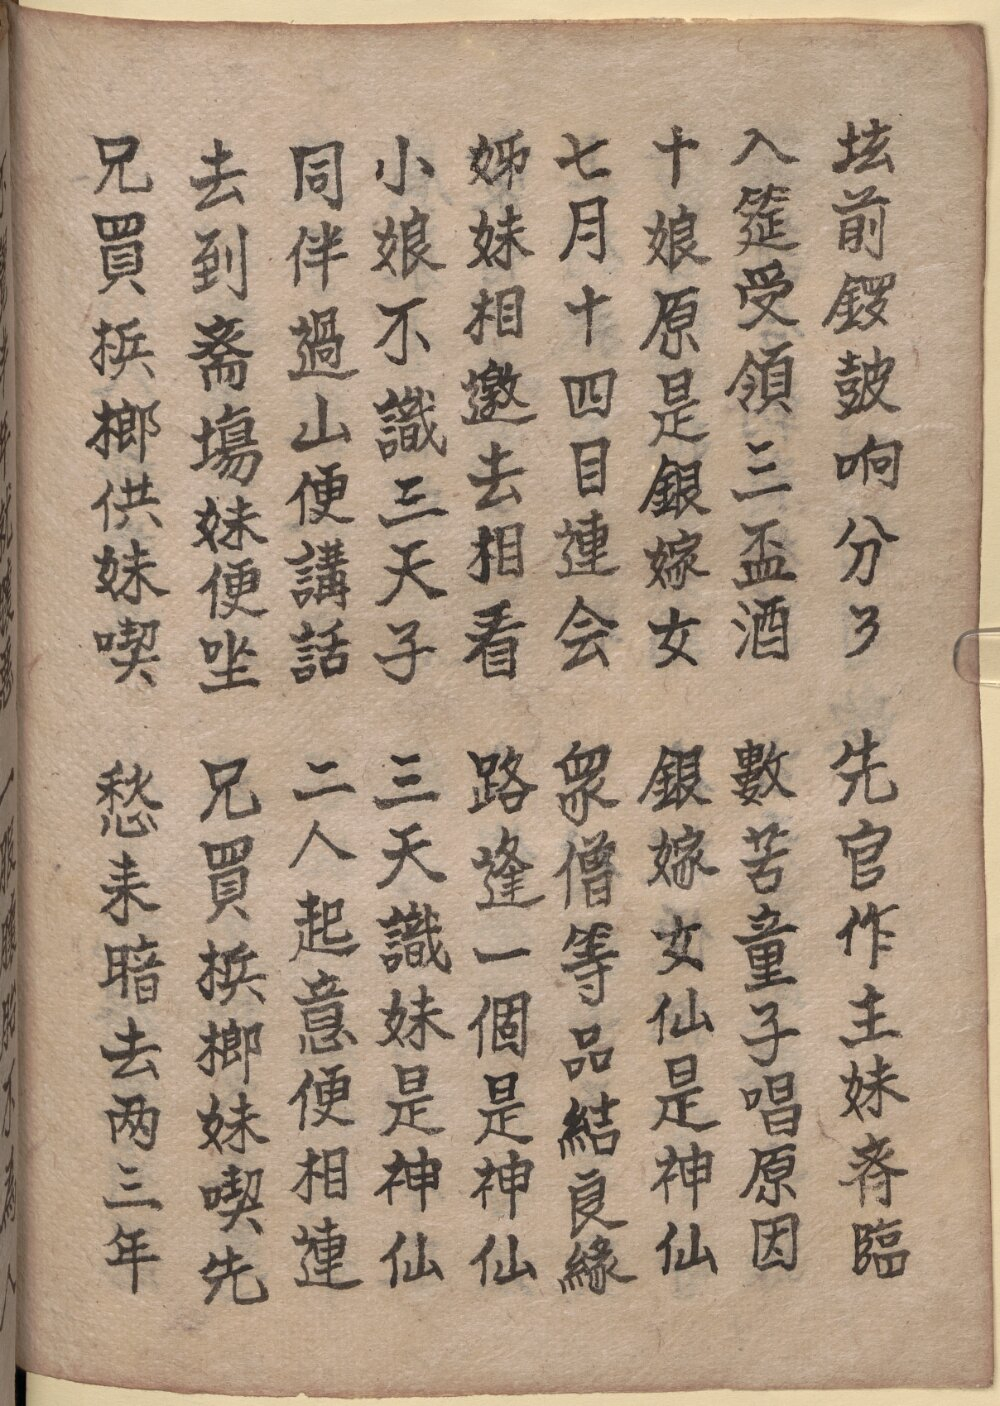 坛前鑼鼓响分了 先官作主妹斉臨
入筵受領三盃酒 數苦童子唱原因
十娘原是銀嫁女 銀嫁女仙是神仙
七月十四目連会 衆僧等品結良緣
姊妹相邀去相看 路逢一個是神仙
小娘不識三天子 三天識妹是神仙
同伴過山便講話 二人起意便相連
去到斋塲妹便坐 兄買梹榔妹喫先
兄買梹榔供妹喫 愁来暗去两三年